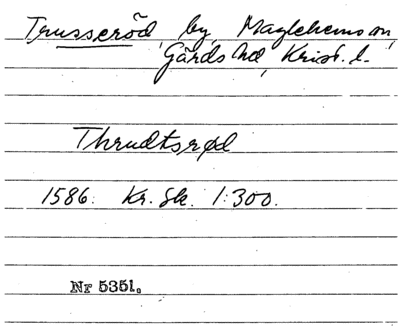 Trusseröd, by, Maglehems sn,
Gärds hd, Krist. l.
Thrudtsrød
1586. Kr. Sk. 1:300.
Nr 5351.